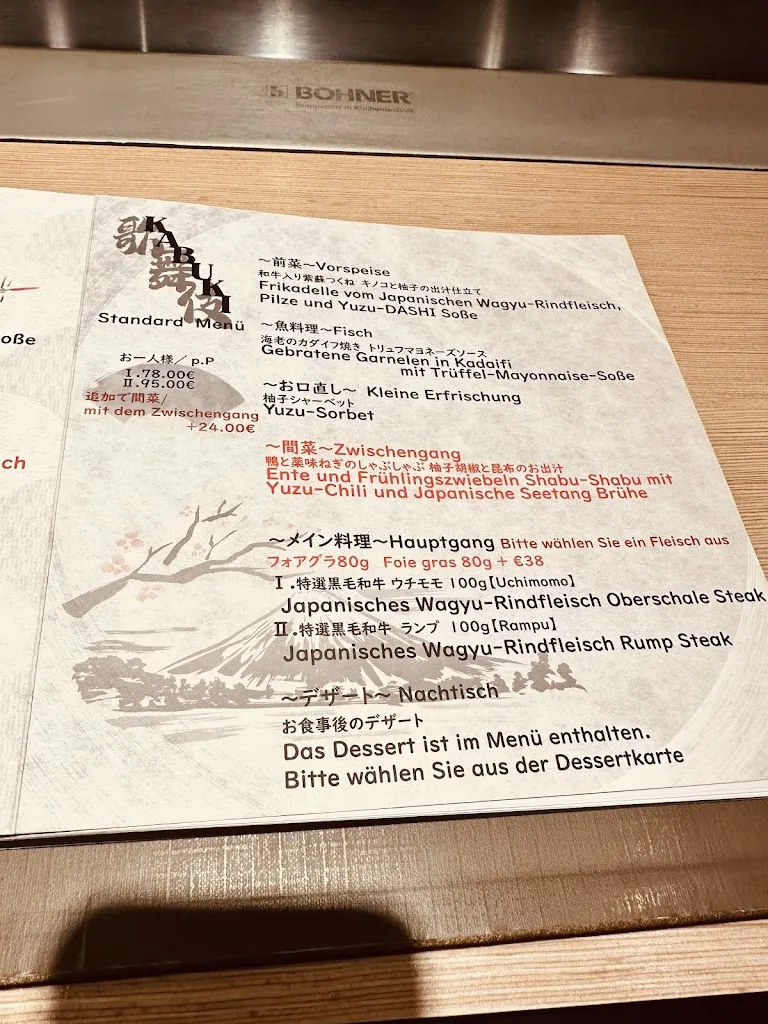 BOHNER
oße
ch
歌舞伎
KABUKI
Standard Menü
お一人様／p.P
Ⅰ.78.00€
Ⅱ.95.00€
追加で間菜/
mit dem Zwischengang
+24.00€
～前菜～Vorspeise
和牛入り紫蘇つくね キノコと柚子の出汁仕立て
Frikadelle vom Japanischen Wagyu-Rindfleisch,
Pilze und Yuzu-DASHI Soße
～魚料理～Fisch
海老のカダイフ焼き トリュフマヨネーズソース
Gebratene Garnelen in Kadaifi
mit Trüffel-Mayonnaise-Soße
～お口直し～ Kleine Erfrischung
柚子シャーベット
Yuzu-Sorbet
～間菜～Zwischengang
鴨と薬味ねぎのしゃぶしゃぶ 柚子胡椒と昆布のお出汁
Ente und Frühlingszwiebeln Shabu-Shabu mit
Yuzu-Chili und Japanische Seetang Brühe
～メイン料理～Hauptgang Bitte wählen Sie ein Fleisch aus
フォアグラ80g Foie gras 80g + €38
Ⅰ.特選黒毛和牛 ウチモモ 100g【Uchimomo】
Japanisches Wagyu-Rindfleisch Oberschale Steak
Ⅱ.特選黒毛和牛 ランプ 100g【Rampu】
Japanisches Wagyu-Rindfleisch Rump Steak
～デザート～ Nachtisch
お食事後のデザート
Das Dessert ist im Menü enthalten.
Bitte wählen Sie aus der Dessertkarte